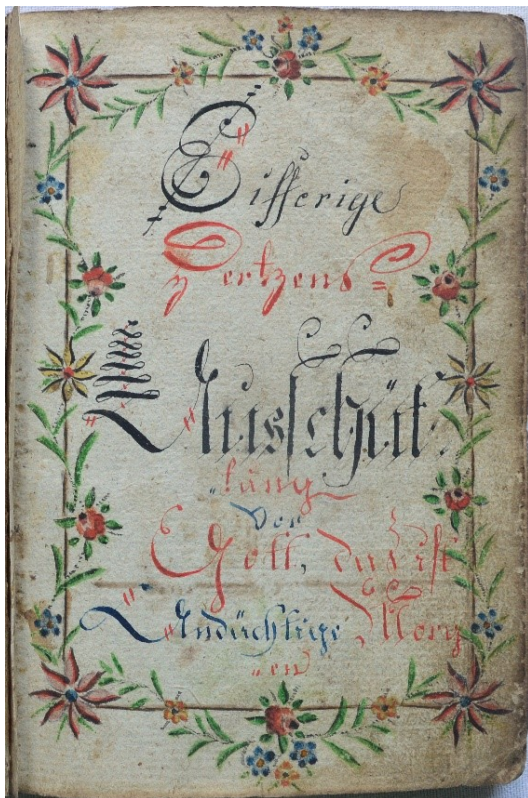 Eifferige
Hertzens=
Ausschüt=
„tung
vor
Gott, das ist
Andächtige Morg
„en